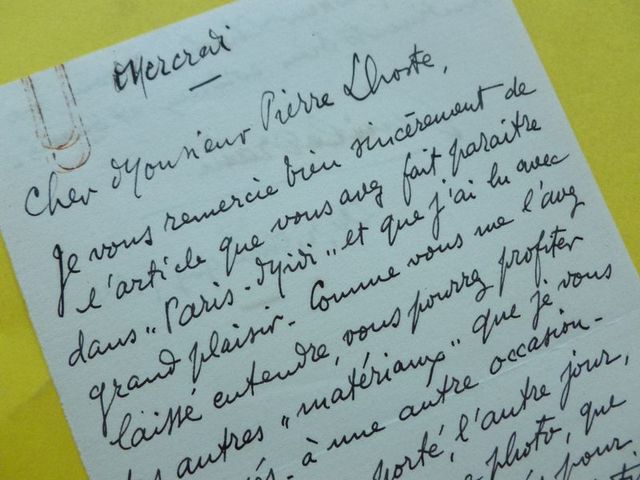 Mercredi
Cher Monsieur Pierre Lhoste,
Je vous remercie bien sincèrement de
l'article que vous avez fait paraître
dans "Paris-Midi" et que j'ai lu avec
grand plaisir. Comme vous me l'avez
laissé entendre, vous pourrez profiter
autres "matériaux" que je vous
à une autre occasion.
porté, l'autre jour,
photo, que
pour